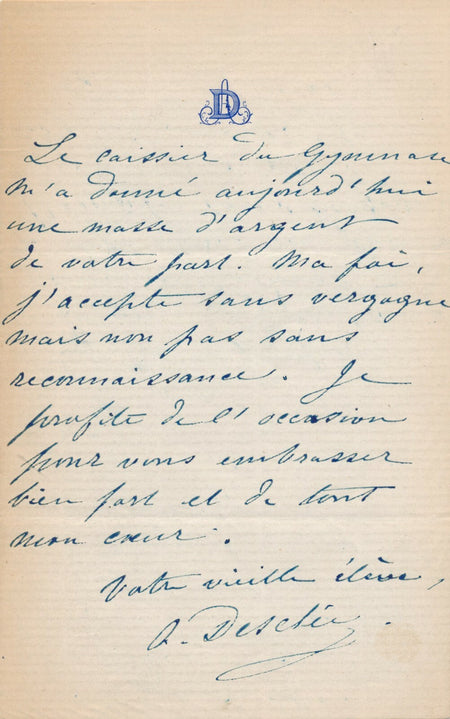 D
Le caissier du Gymnase
m'a donné aujourd'hui
une masse d'argent
de votre part. Ma foi,
j'accepte sans vergogne
mais non pas sans
reconnaissance. Je
profite de l'occasion
pour vous embrasser
bien fort et de tout
mon cœur.
Votre vieille élève,
A. Desclée